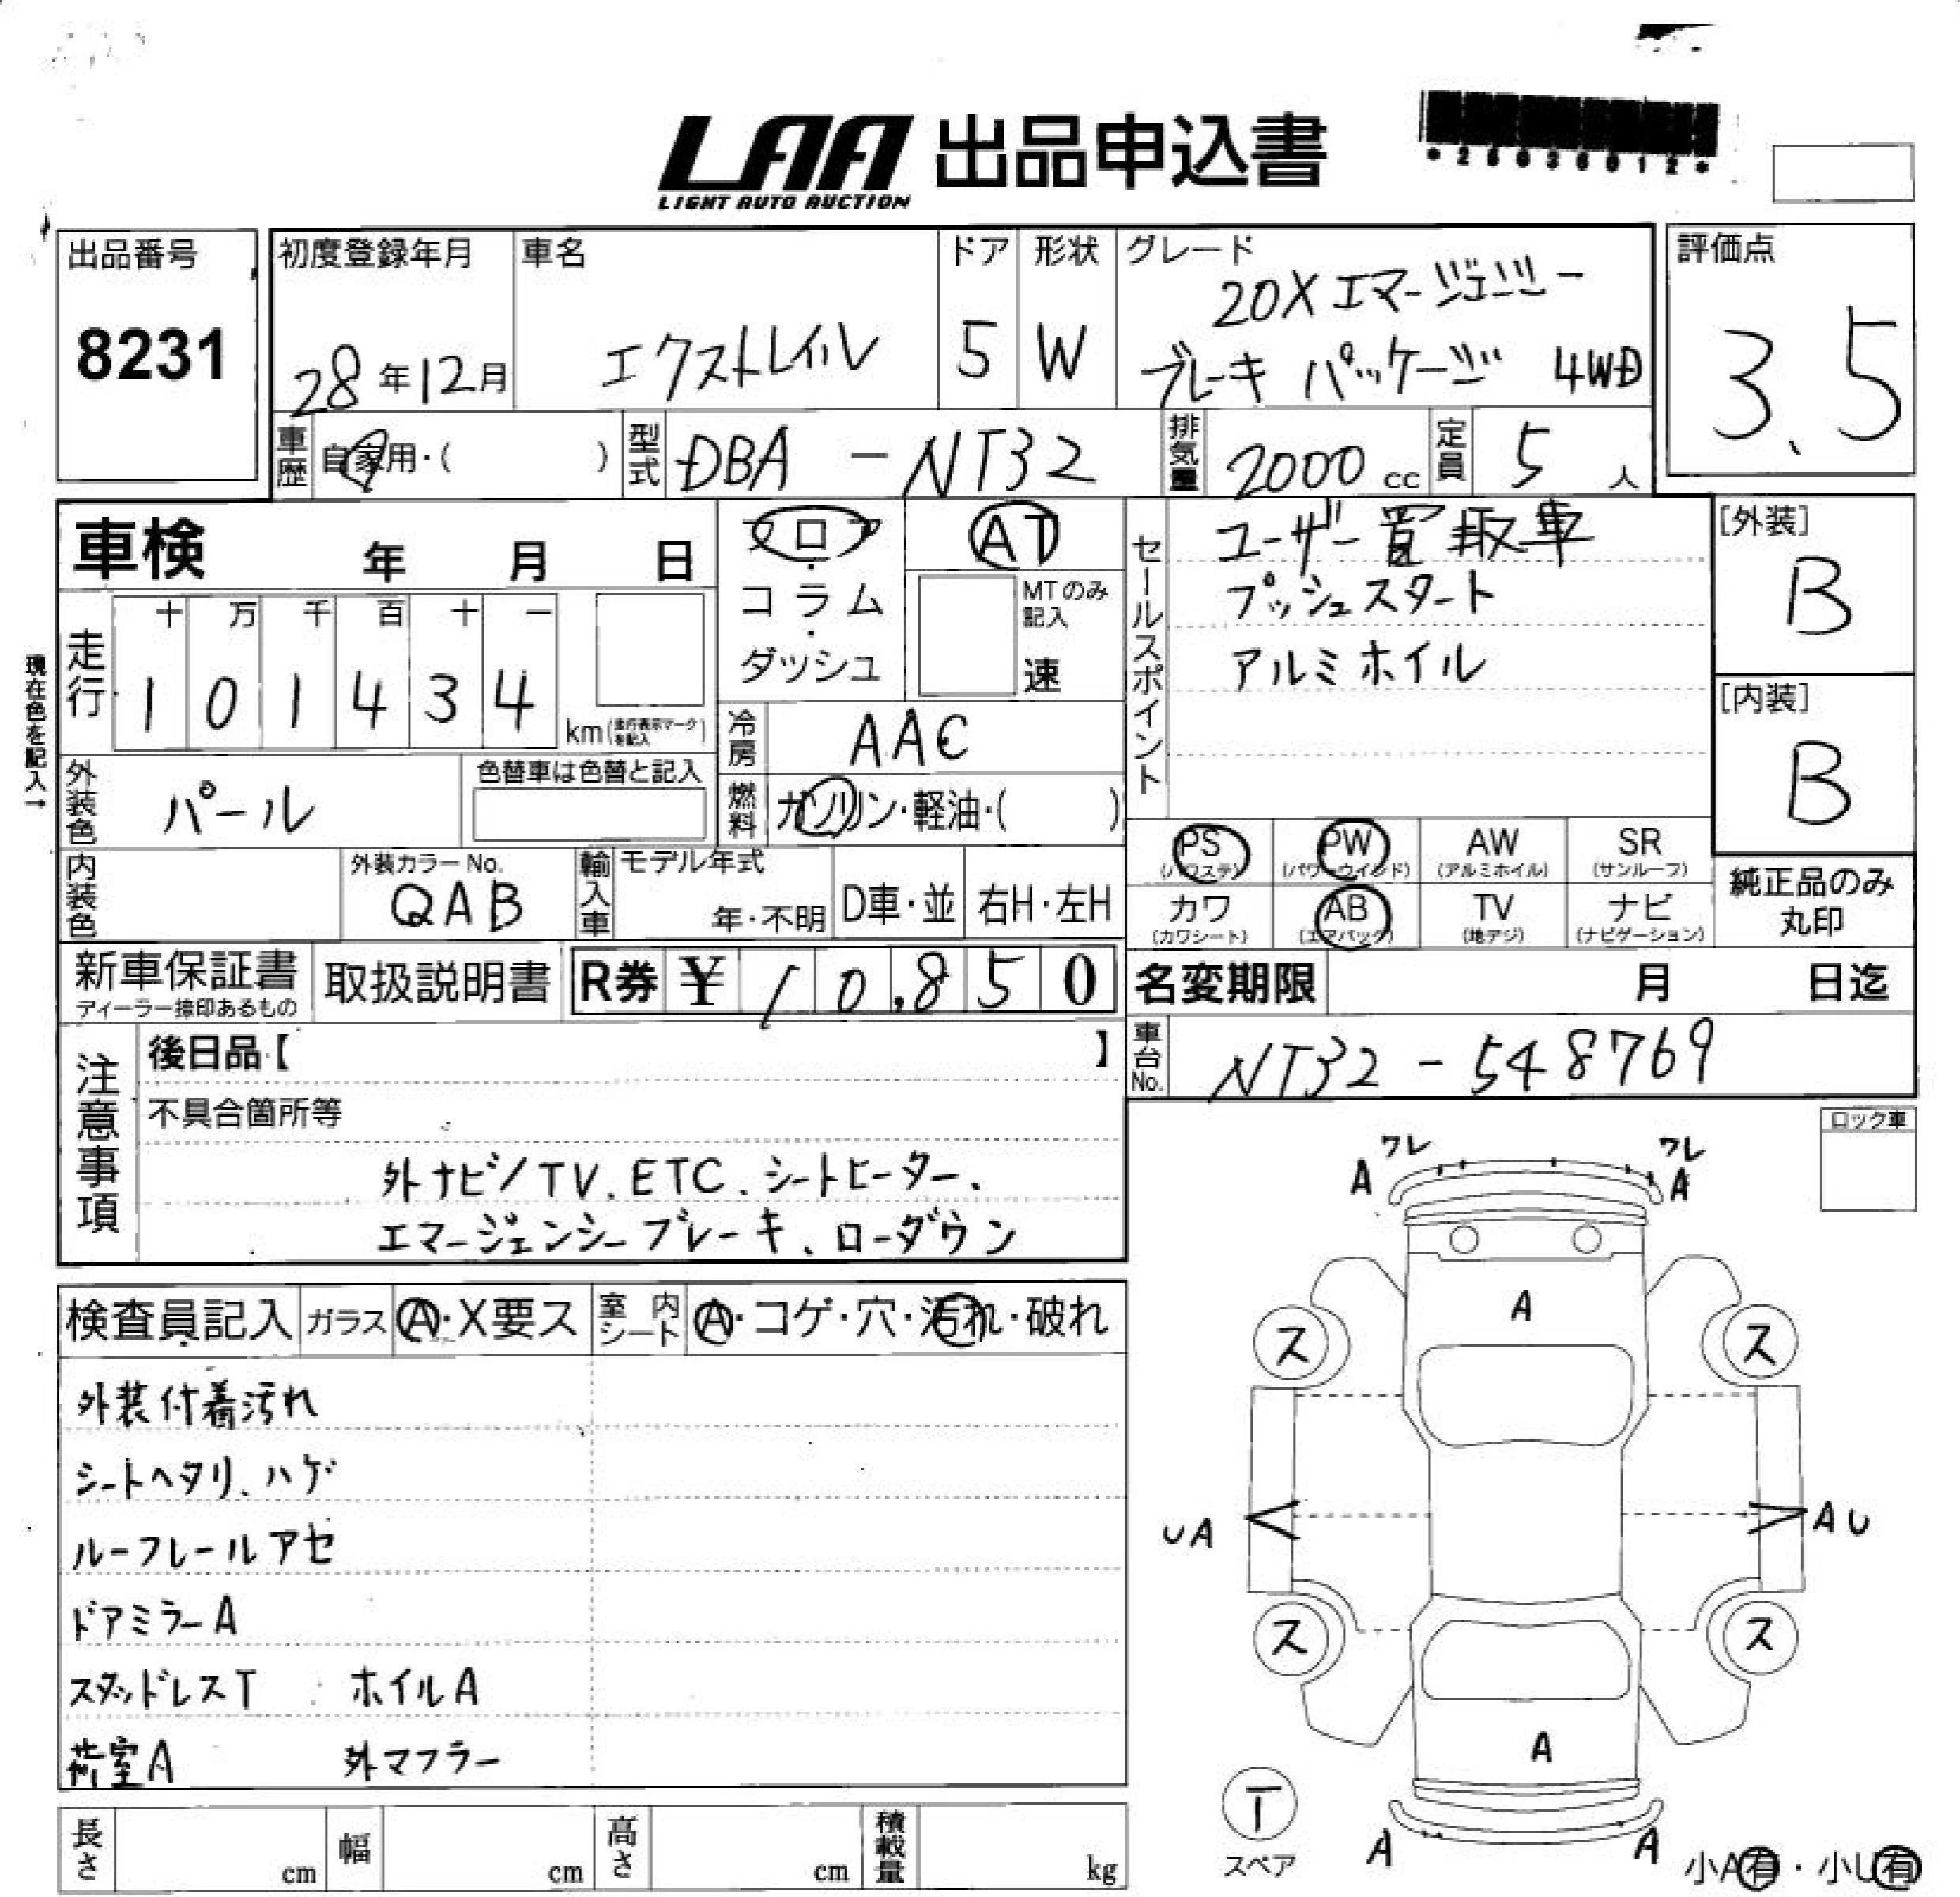 LAA 出品申込書
LIGHT AUTO AUCTION
*25036012*
出品番号
8231
初度登録年月
28年12月
車名
エクストレイル
ドア
5
形状
W
グレード
20X エマージェンシー
ブレーキ パッケージ 4WD
評価点
3.5
車歴
自家用・( )
型式
DBA - NT32
排気量
2000 cc
定員
5 人
車検 年 月 日
現在色を記入→
走行
十 万 千 百 十 一
1 0 1 4 3 4
km(走行表示マークを記入)
フロア
・
コラム
・
ダッシュ
AT
MTのみ記入
速
冷房
AAC
燃料
ガソリン・軽油・( )
セールスポイント
ユーザー買取車
プッシュスタート
アルミホイル
[外装]
B
[内装]
B
外装色
パール
色替車は色替と記入
内装色
外装カラーNo.
QAB
輸入車
モデル年式
年・不明
D車・並
右H・左H
PS
(パワステ)
PW
(パワーウインド)
AW
(アルミホイル)
SR
(サンルーフ)
カワ
(カワシート)
AB
(エアバック)
TV
(地デジ)
ナビ
(ナビゲーション)
純正品のみ
丸印
新車保証書
ディーラー捺印あるもの
取扱説明書
R券 ¥ 10,850
名変期限 月 日迄
車台No.
NT32 - 548769
注意事項
後日品【 】
不具合箇所等
外ナビ/TV、ETC、シートヒーター、
エマージェンシーブレーキ、ローダウン
ロック車
検査員記入
ガラス
A・X要ス
室内シート
A・コゲ・穴・汚れ・破れ
外装付着汚れ
シートヘタリ、ハゲ
ルーフレールアセ
ドアミラーA
スタッドレスT ホイルA
荷室A 外マフラー
ワレ ワレ
A A
A
ス ス
UA AU
ス ス
A
T
スペア
A A
小A有・小U有
長さ cm
幅 cm
高さ cm
積載量 kg